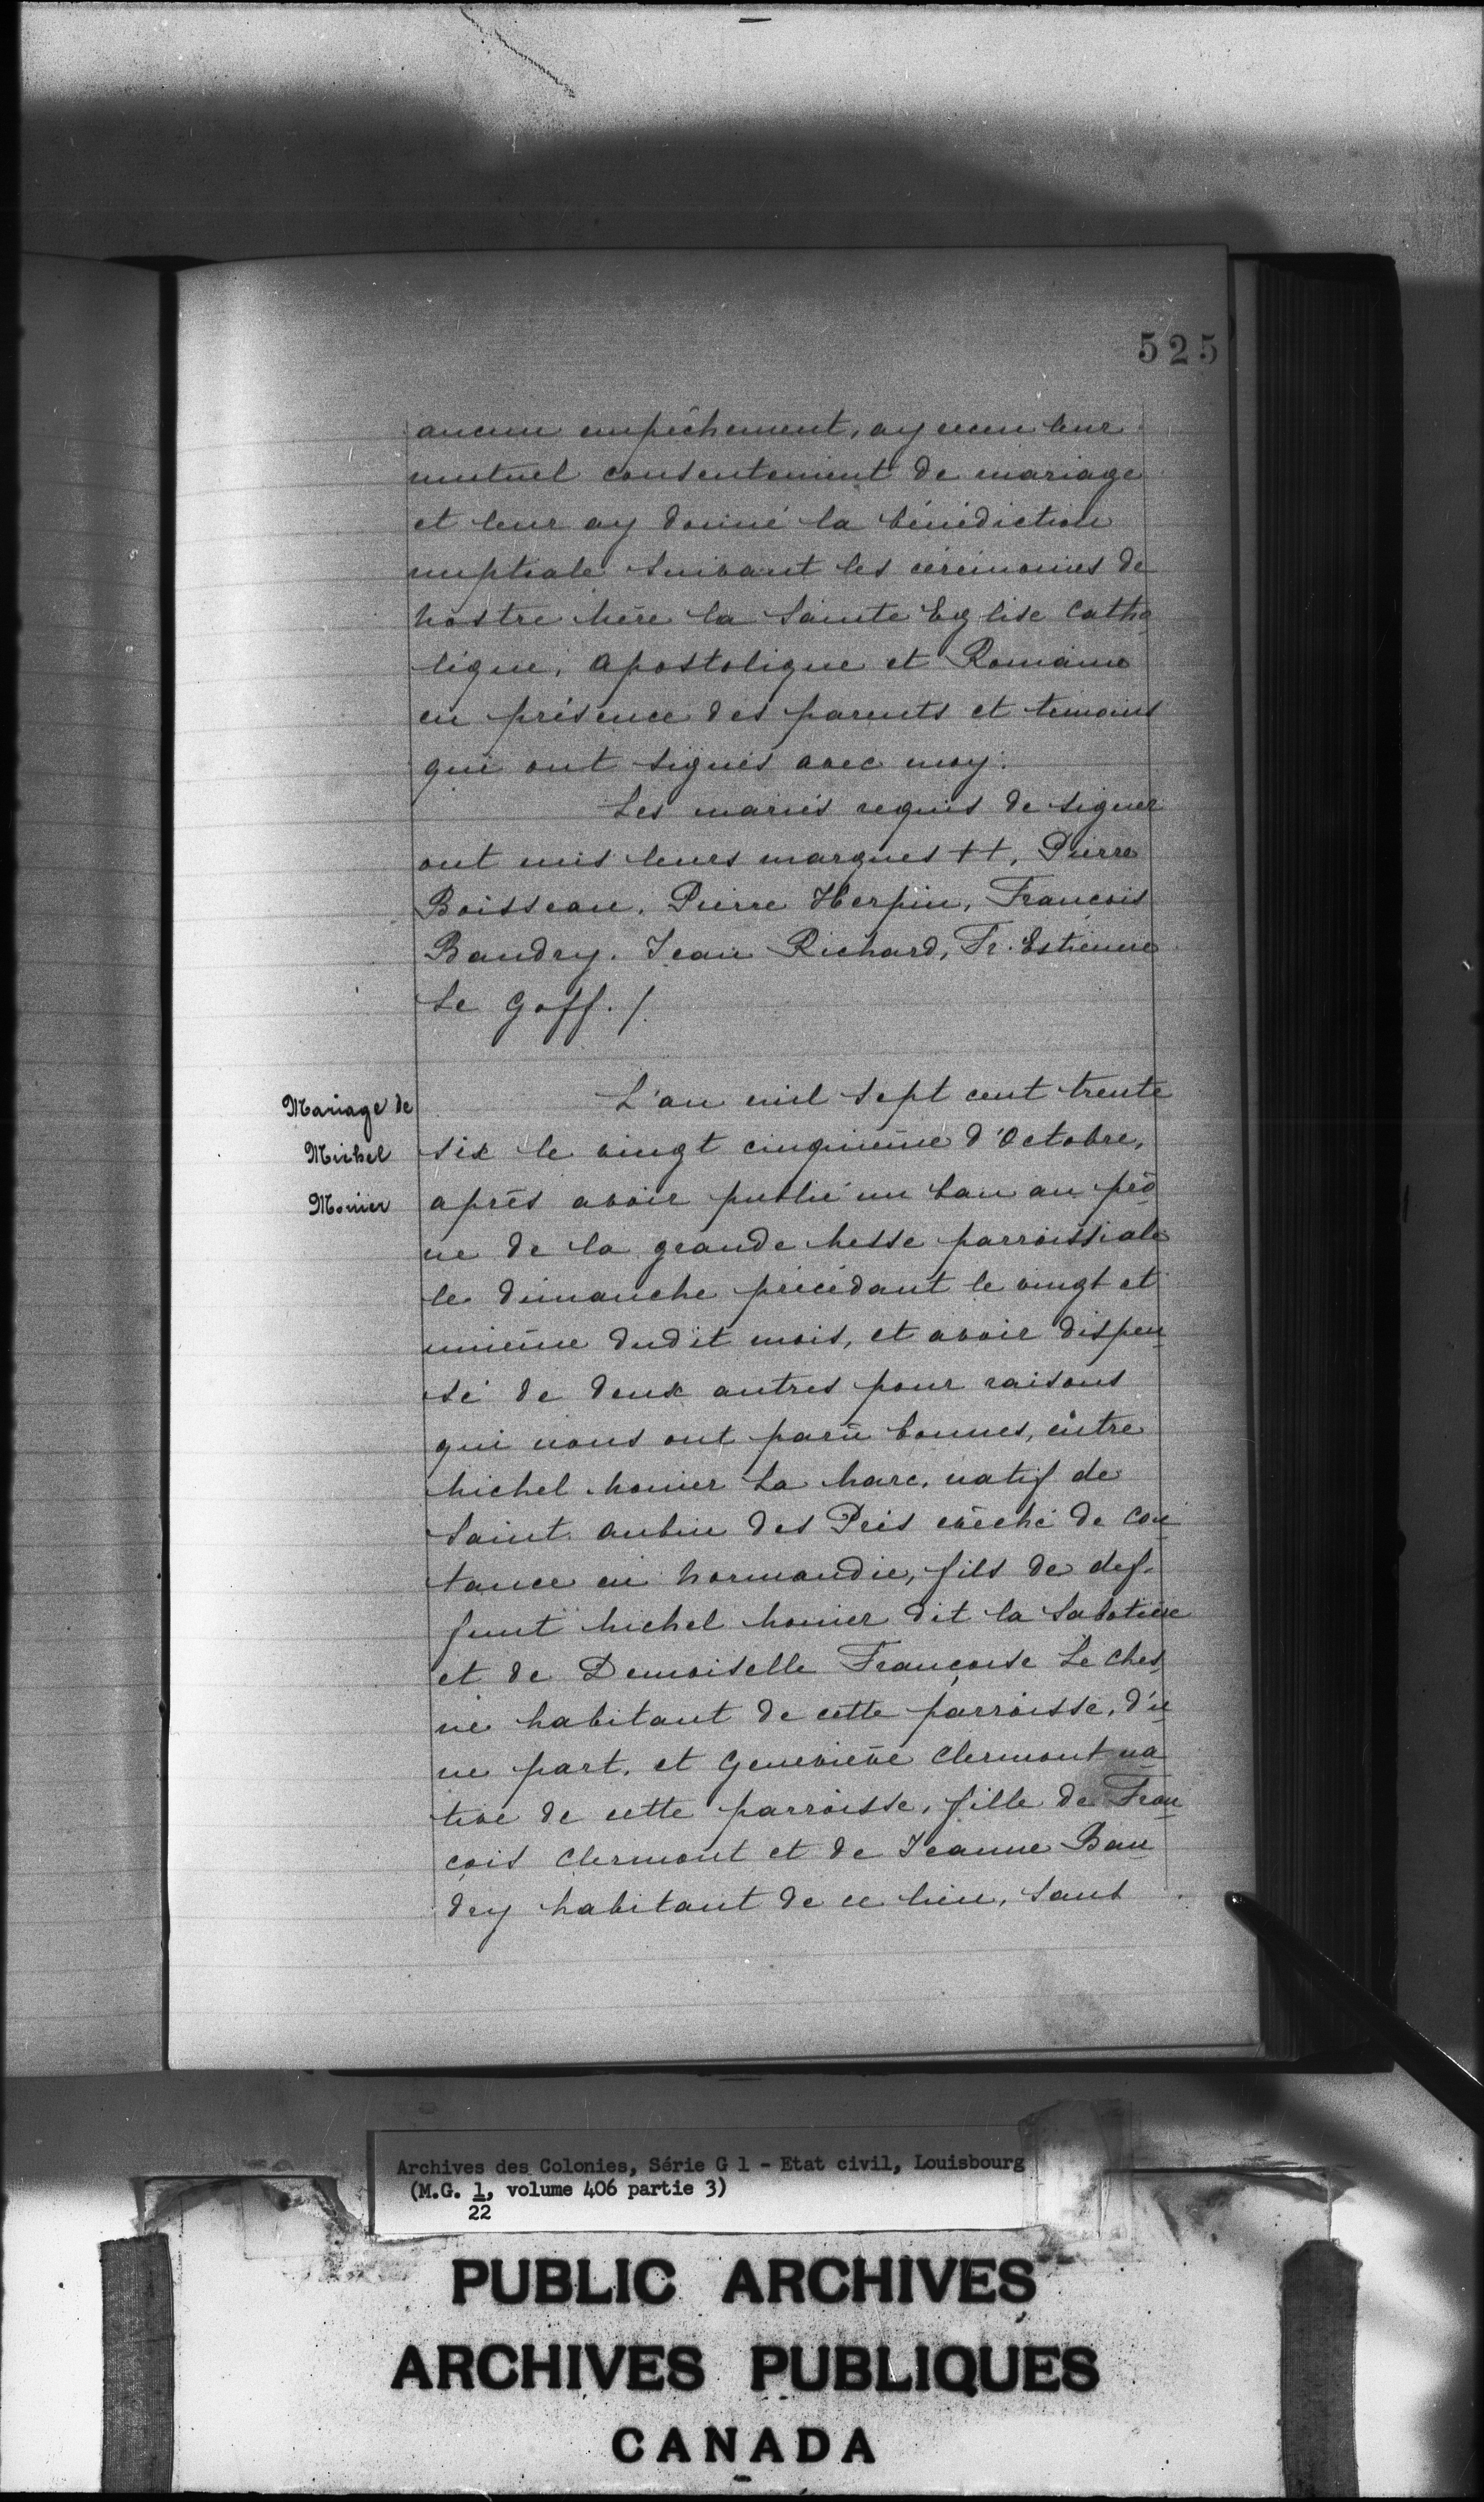 525
aucun empêchement, ay recu leur
mutuel consentement de mariage
et leur ay donné la bénédiction
nuptiale suivant les cérémonies de
nostre Mère la Sainte Eglise Catho
lique, Apostolique et Romaine
en présence des parents et témoins
qui ont signés avec moy.
Les mariés requis de signer
ont mis leurs marques ++, Pierre
Boisseau, Pierre Herpin, François
Baudry, Jean Richard, Fr. Estienne
Le Goff. /.
Mariage de
Michel
Monier
L'an mil sept cent trente
six le vingt cinquième d'Octobre,
après avoir publié un ban au prô
ne de la grande Messe parroissiale
le dimanche précédant le vingt et
unième dudit mois, et avoir dispen
sé de deux autres pour raisons
qui nous ont parü bonnes, entre
Michel Monier La Marc, natif de
Saint Aubin des Préz evêché de Cou
tance en Normandie, fils de def-
funt Michel Monier dit la Sabotière
et de Demoiselle Françoise Le Ches
né habitant de cette parroisse, d'u
ne part, et Geneviève Clermont na
tive de cette parroisse, fille de Fran
çois Clermont et de Jeanne Bau
dry habitant de ce lieu, sans
Archives des Colonies, Série G 1 - Etat civil, Louisbourg
(M.G. 1, volume 406 partie 3)
22
PUBLIC ARCHIVES
ARCHIVES PUBLIQUES
CANADA